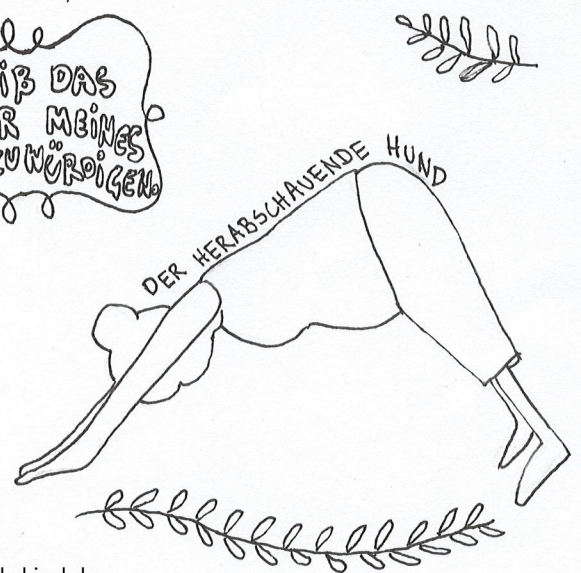 DAS
MEINES
WÜRDIGEN.
DER HERABSCHAUENDE HUND